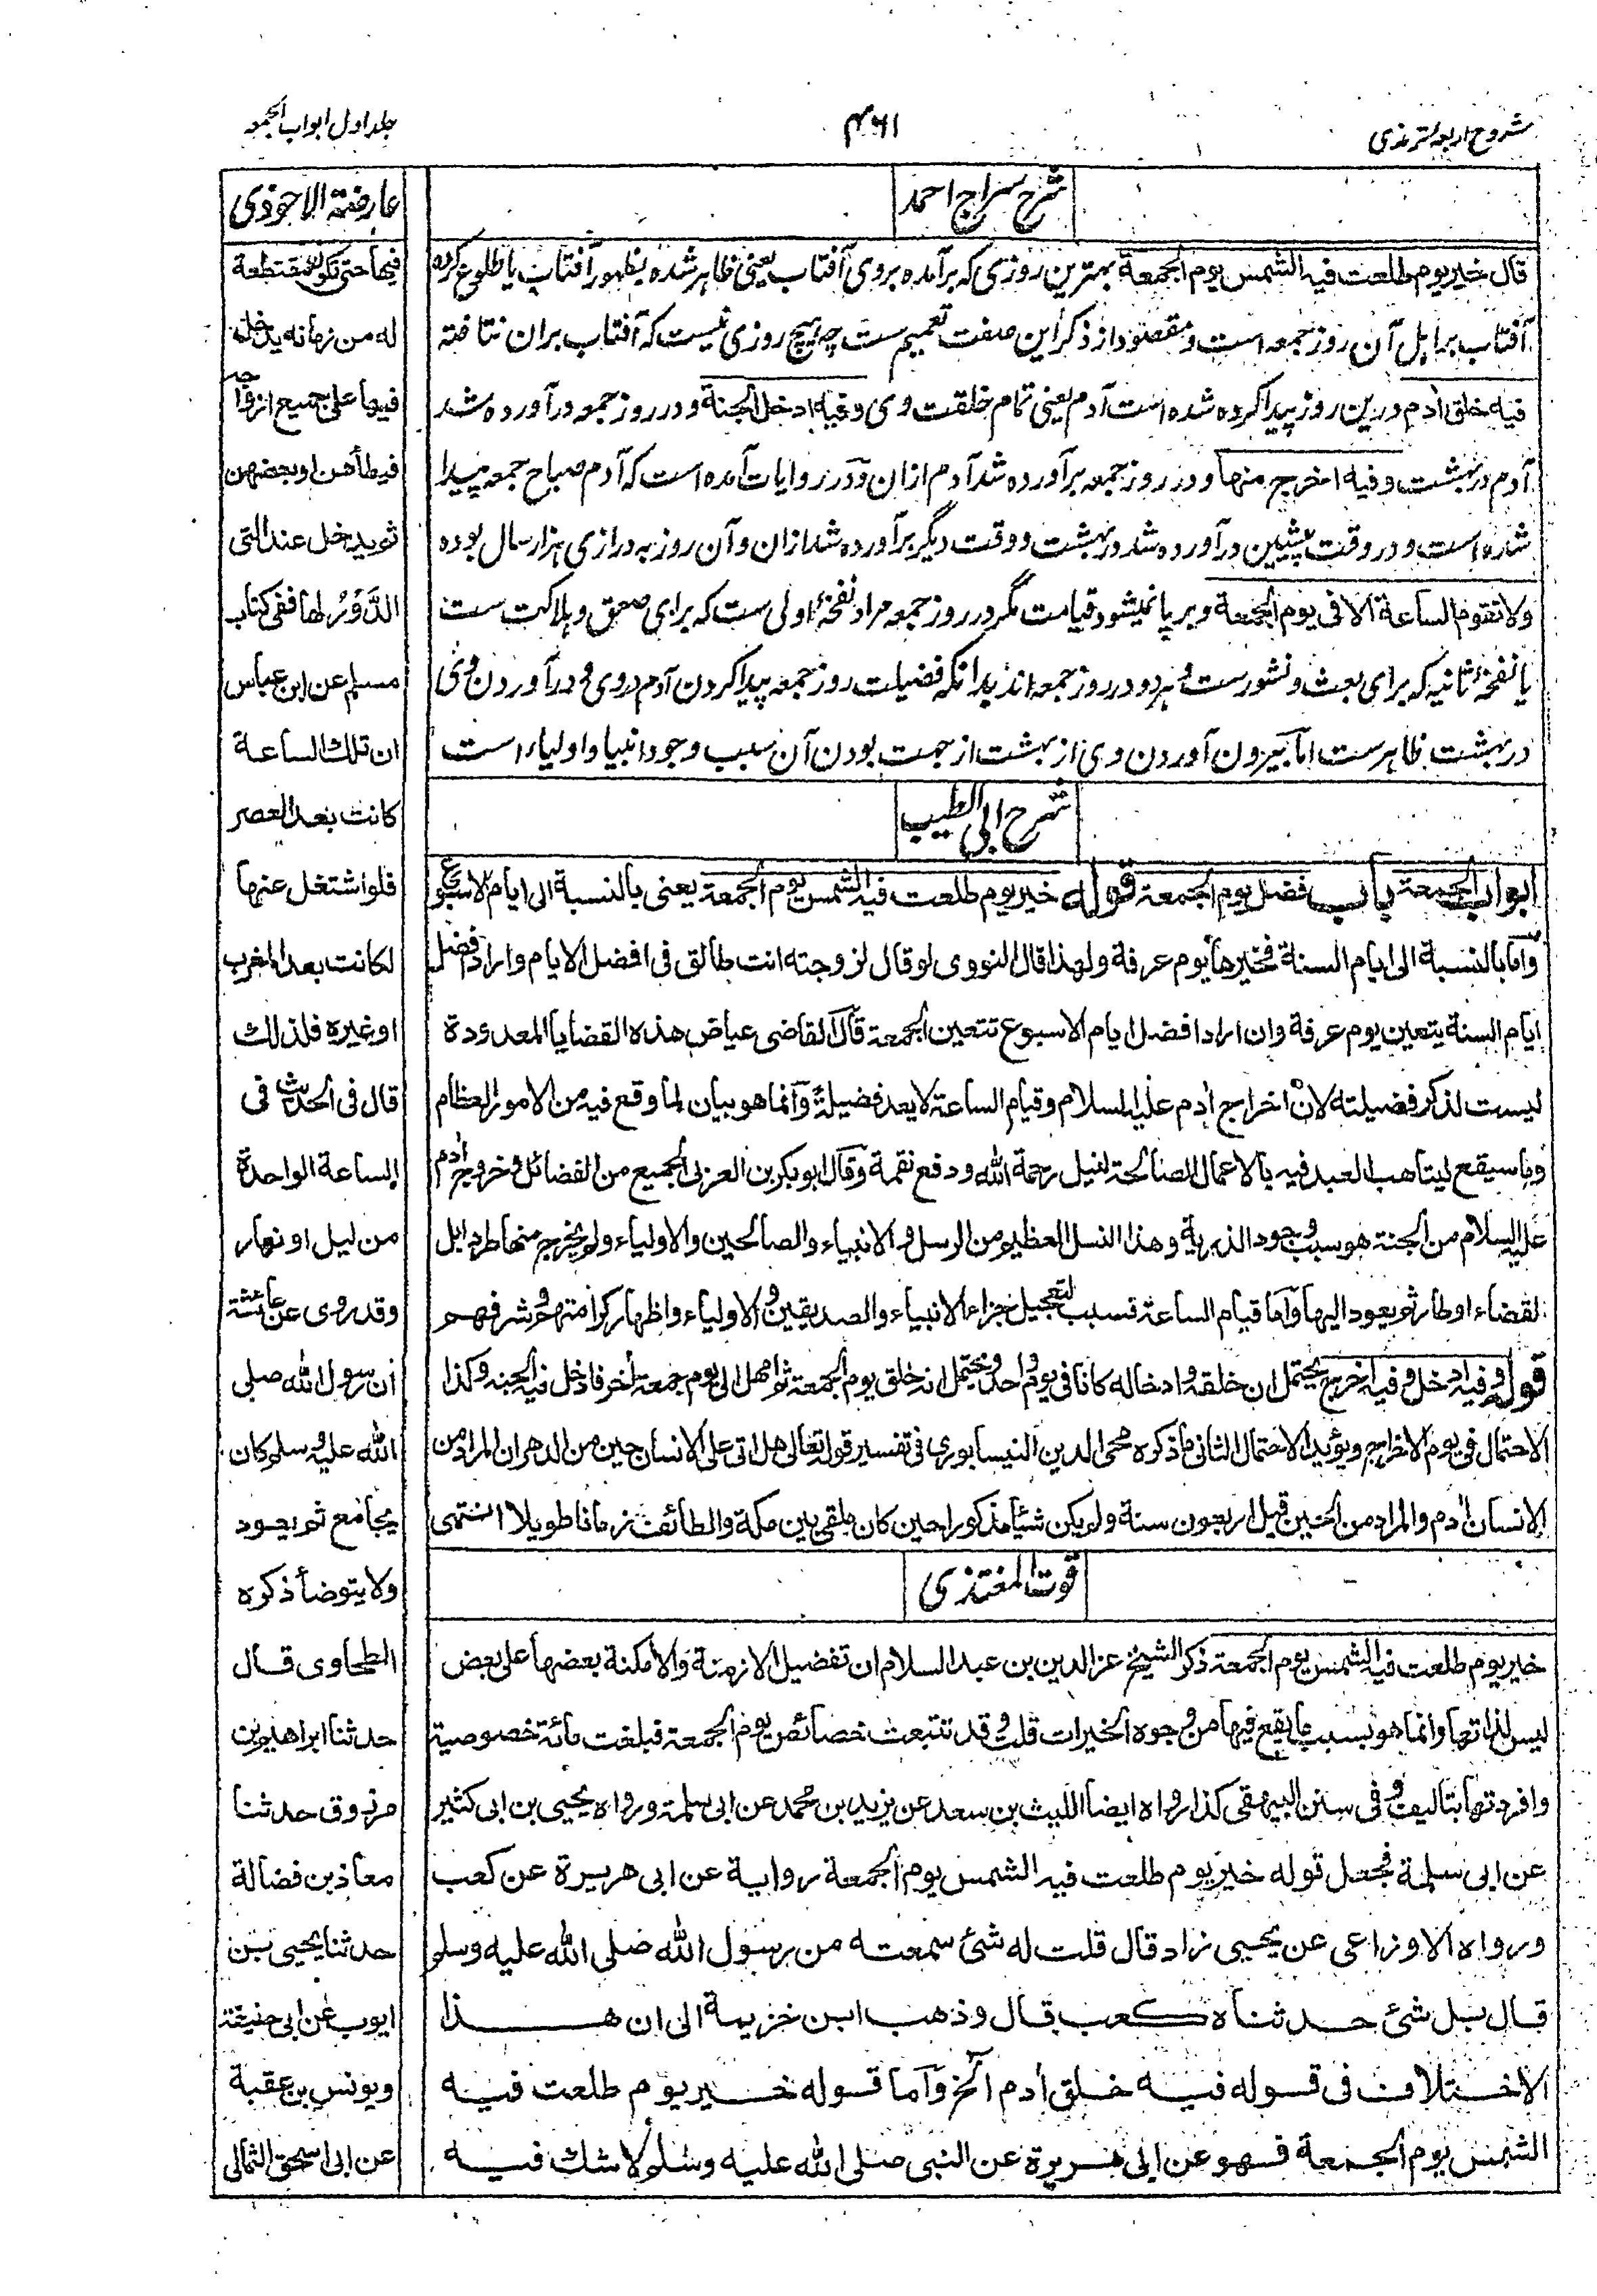 شروح اربعہ ترمذی
۴۶۱
جلد اول ابواب الجمعہ
شرح سراج احمد
قال خیر یوم طلعت فیه الشمس یوم الجمعة بهترین روزی که برآمده بروی آفتاب یعنی ظاهر شده بظهور آفتاب یا طلوع کرده
آفتاب برا پل آن روز جمعه است و مقصود از ذکر این صفت تعمیم ست چه هیچ روزی نیست که آفتاب بران نتافته
فیه خلق ادم درین روز پیدا کرده شده است آدم یعنی تمام خلقت وی و فیه ادخل الجنة و در روز جمعه درآورده شد
آدم در بهشت و فیه اخرج منها و در روز جمعه برآورده شد آدم ازان و در روایات آمده است که آدم صباح جمعه پیدا
شده است و در وقت پیشین درآورده شد در بهشت و وقت دیگر برآورده شد ازان و آن روز به درازی هزار سال بوده
ولا تقوم الساعة الا فی یوم الجمعة و برپا نمیشود قیامت مگر در روز جمعه مراد نفخهٔ اولی ست که برای صعق و هلاکت ست
یا نفخهٔ ثانیه که برای بعث و نشور ست و هر دو در روز جمعه اند بدانکه فضیلت روز جمعه پیدا کردن آدم در وی و درآوردن وی
در بهشت ظاهر ست اما بیرون آوردن وی از بهشت از جهت بودن آن سبب وجود انبیا و اولیاء است
شرح ابی الطیب
ابواب الجمعة باب فضل یوم الجمعة قوله خیر یوم طلعت فیه الشمس یوم الجمعة یعنی بالنسبة الی ایام الاسبوع
واما بالنسبة الی ایام السنة فخیرها یوم عرفة ولهذا قال النووی لو قال لزوجته انت طالق فی افضل الایام واراد افضل
ایام السنة یتعین یوم عرفة وان اراد افضل ایام الاسبوع تتعین الجمعة قال القاضی عیاض هذه القضایا المعدودة
لیست لذکر فضیلته لان اخراج ادم علیه السلام وقیام الساعة لا یعد فضیلة وانما هو بیان لما وقع فیه من الامور العظام
وما سیقع لیتاهب العبد فیه بالاعمال الصالحة لنیل رحمة الله ودفع نقمة وقال ابو بکر بن العربی الجمیع من الفضائل وخروج ادم
علیه السلام من الجنة هو سبب وجود الذریة وهذا النسل العظیم ومن الرسل والانبیاء والصالحین والاولیاء ولم یخرج منها طردا بل
لقضاء اوطار ثم یعود الیها واما قیام الساعة فسبب لتعجیل جزاء الانبیاء والصدیقین والاولیاء واظهار کرامتهم وشرفهم
قوله وفیه ادخل وفیه اخرج یحتمل ان خلقه وادخاله کانا فی یوم واحد ویحتمل انه خلق یوم الجمعة ثم امهل الی یوم جمعة اخر فادخل فیه الجنة وکذا
الاحتمال فی یوم الاخراج ویؤید الاحتمال الثانی ما ذکره محی الدین النیسابوری فی تفسیر قوله تعالی هل اتی علی الانسان حین من الدهر ان المراد من
الانسان ادم والمراد من الحین قیل اربعون سنة ولم یکن شیئا مذکورا حین کان ملقی بین مکة والطائف زمانا طویلا انتهی
قوت المغتذی
خیر یوم طلعت فیه الشمس یوم الجمعة ذکر الشیخ عز الدین بن عبد السلام ان تفضیل الازمنة والامکنة بعضها علی بعض
لیس لذاتها وانما هو بسبب ما یقع فیها من وجوه الخیرات قلت وقد تتبعت خصائص یوم الجمعة فبلغت مائة خصوصیة
وافردتها بتالیف وفی سنن البیهقی کذا رواه ایضا اللیث بن سعد عن یزید بن محمد عن ابی سلمة ورواه یحیی بن ابی کثیر
عن ابی سلمة فجعل قوله خیر یوم طلعت فیه الشمس یوم الجمعة روایة عن ابی هریرة عن کعب
ورواه الاوزاعی عن یحیی زاد قال قلت له شئ سمعته من رسول الله صلی الله علیه وسلم
قال بل شئ حدثناه کعب قال وذهب ابن خزیمة الی ان هذا
الاختلاف فی قوله فیه خلق ادم الخ واما قوله خیر یوم طلعت فیه
الشمس یوم الجمعة فهو عن ابی هریرة عن النبی صلی الله علیه وسلم لا شك فیه
عارضة الاحوذی
فیها حتی تکون مقتطعة
له من زمانه یدخل
فیها علی جمیع ازواجه
فیطأهن او بعضهن
ثم یدخل عند التی
الدَّوْرُ لها ففی کتاب
مسلم عن ابن عباس
ان تلك الساعة
کانت بعد العصر
فلو اشتغل عنها
لکانت بعد المغرب
او غیره فلذلك
قال فی الحدیث فی
الساعة الواحدة
من لیل او نهار
وقد روی عن عائشة
ان رسول الله صلی
الله علیه وسلم کان
یجامع ثم یعود
ولا یتوضأ ذکره
الطحاوی قال
حدثنا ابراهیم بن
مرزوق حدثنا
معاذ بن فضالة
حدثنا یحیی بن
ایوب عن ابی حنیفة
ویونس بن عقبة
عن ابی اسحق الثمالی